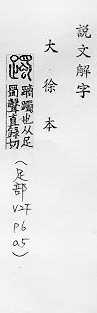 說文解字
大徐本
躅
蹢躅也从足
蜀聲直錄切
(足部 V2下 p6 a5)